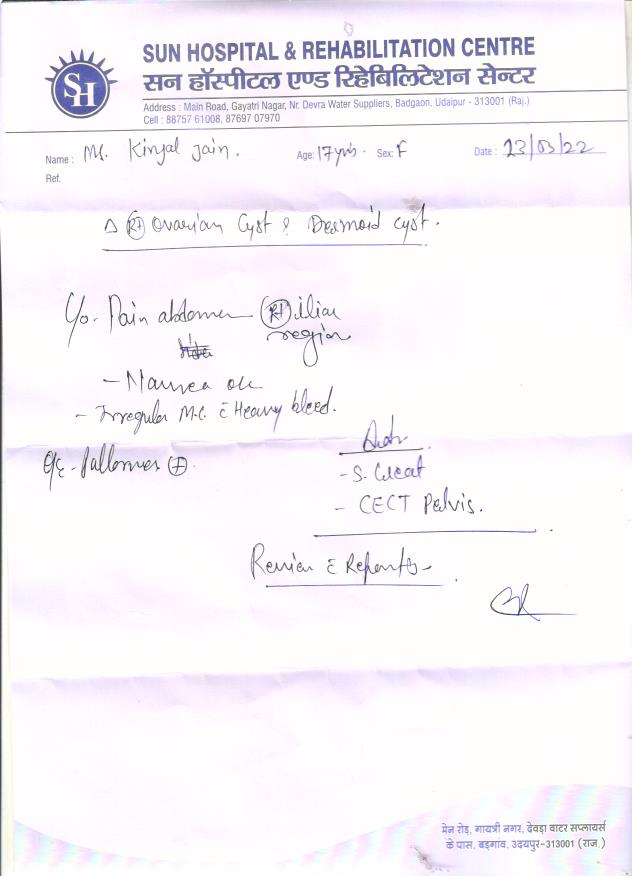 SH
SUN HOSPITAL & REHABILITATION CENTRE
सन हॉस्पीटल एण्ड रिहेबिलिटेशन सेन्टर
Address : Main Road, Gayatri Nagar, Nr. Devra Water Suppliers, Badgaon, Udaipur - 313001 (Raj.)
Cell : 88757 61008, 87697 07970
Name : Ms. Kinjal Jain. Age: 17 yrs. Sex: F Date : 23/03/22
Ref.
Δ Rt Ovarian Cyst ? Desmoid cyst.
C/o - Pain abdomen Rt iliac
region
- Nausea
- Irregular M.C. c̄ Heavy bleed.
O/E - Pallor +
Adv
- S. Creat
- CECT Pelvis.
Review c̄ Reports
मेन रोड़, गायत्री नगर, देवड़ा वाटर सप्लायर्स
के पास, बड़गांव, उदयपुर-313001 (राज.)